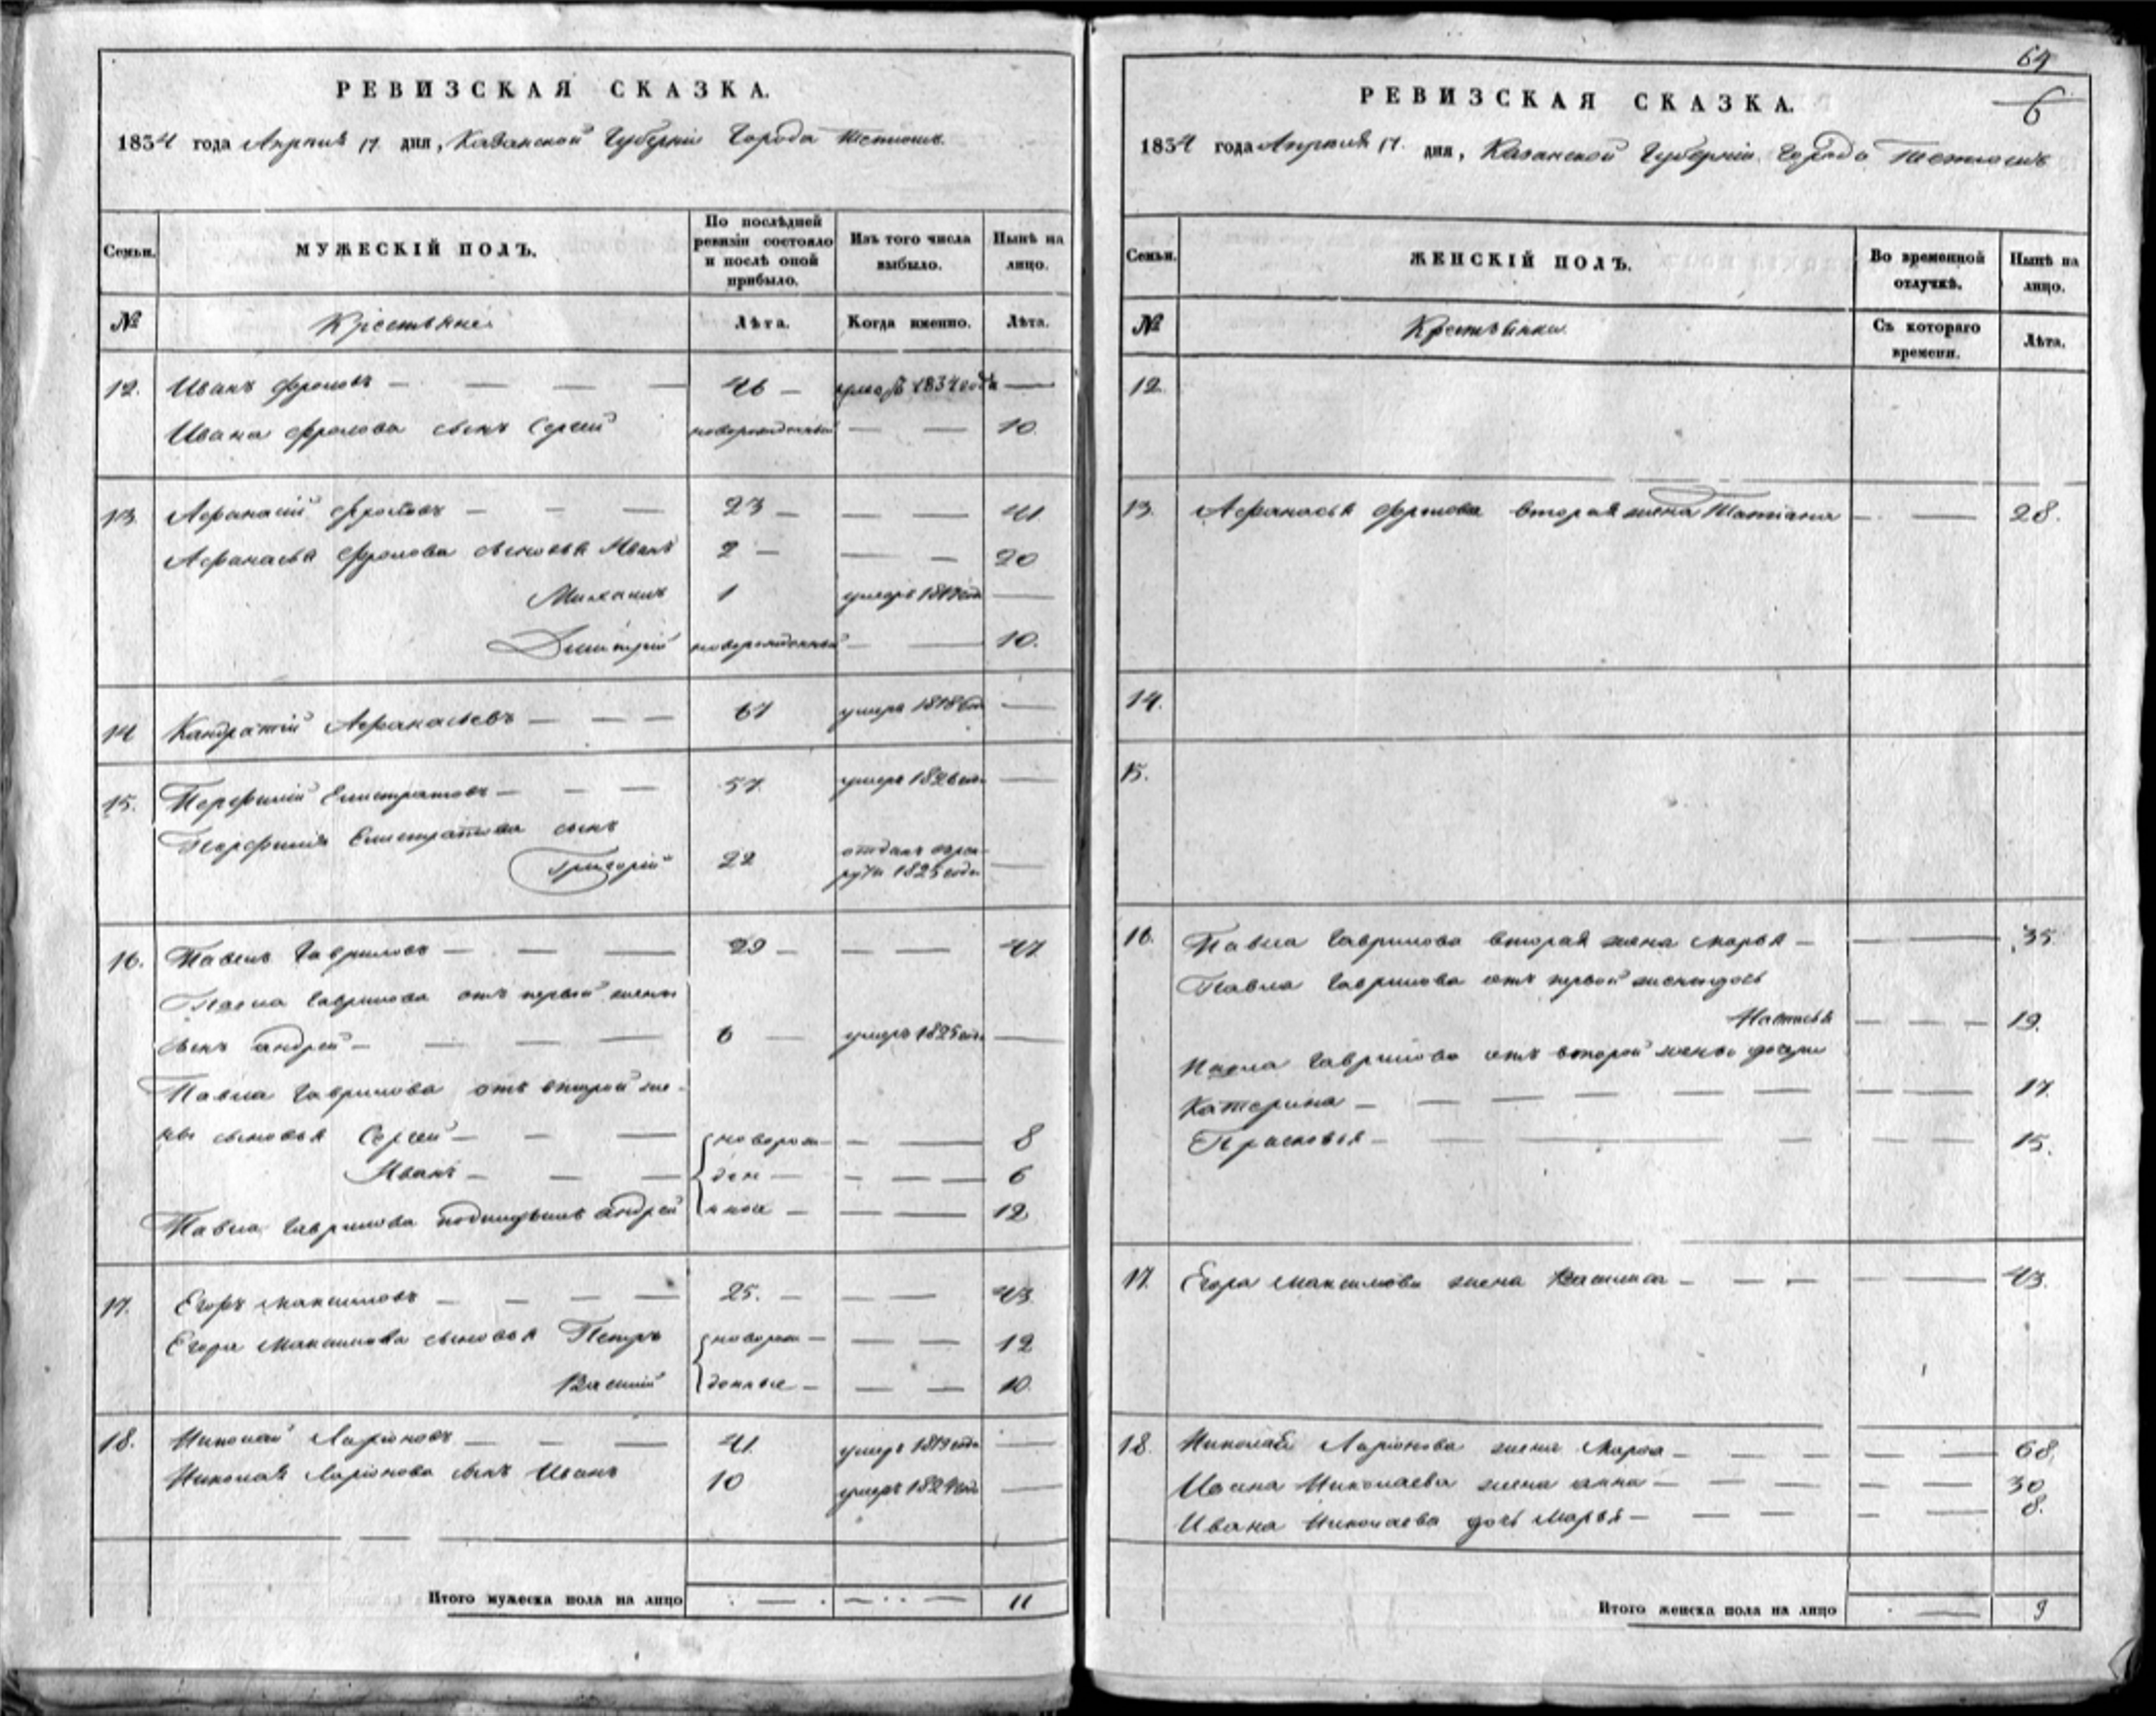 РЕВИЗСКАЯ СКАЗКА.
1834 года Апреля 17 дня, Казанской Губерніи Города Тетюшъ
Семьи.
МУЖЕСКІЙ ПОЛЪ.
По послѣдней ревизіи состояло и послѣ оной прибыло.
Изъ того числа выбыло.
Нынѣ на лицо.
№
Крестьяне
Лѣта.
Когда именно.
Лѣта.
12. Иванъ Фроловъ — 46 — 1834 года —
Ивана Фролова сынъ Сергей новорожденный — — 10.
13. Афанасій Фроловъ — 23 — — — 41
Афанасья Фролова сыновья Иванъ 2 — — — 20
Михаилъ 1 умеръ 1819 года —
Дмитрій новорожденный — — 10.
14 Кандратій Афанасьевъ — 67 умеръ 1818 года —
15. Перфилій Елистратовъ — 57. умеръ 1826 года —
Перфилія Елистратова сынъ
Григорій 22 отданъ въ рек-
руты 1825 года —
16. Павелъ Гавриловъ — 29 — — — 47
Павла Гаврилова отъ первой жены
сынъ Андрей — 6 — умеръ 1825 года —
Павла Гаврилова отъ второй же-
ны сыновья Сергей — новорож — — 8
Иванъ — ден — — 6
Павла Гаврилова Андрей ные — — 12
17. Егоръ Максимовъ — 25. — — — 43.
Егора Максимова сыновья Петръ новорож — — 12
Василій денные — — 10.
18. Николай Ларіоновъ — 41. умеръ 1819 года —
Николая Ларіонова сынъ Иванъ 10 умеръ 1829 года —
Итого мужеска пола на лицо — — 11
64
6
РЕВИЗСКАЯ СКАЗКА.
1834 года Апреля 17. дня, Казанской Губерніи Города Тетюшъ
Семьи.
ЖЕНСКІЙ ПОЛЪ.
Во временной отлучкѣ.
Нынѣ на лицо.
№
Крестьянки
Съ котораго времени.
Лѣта.
12
13. Афанасья Фролова вторая жена Татіана — — 28.
14.
15.
16. Павла Гаврилова вторая жена Марья — — 35
Павла Гаврилова отъ первой жены дочь
Настасья — — — 19.
Павла Гаврилова отъ второй жены дочери
Катерина — — — 17.
Прасковья — — — 15.
17. Егора Максимова жена Василиса — — — 43.
18. Николая Ларіонова жена Марфа — — — 68.
Ивана Николаева жена Анна — — — 30
Ивана Николаева дочь Марья — — — 8.
Итого женска пола на лицо — 9